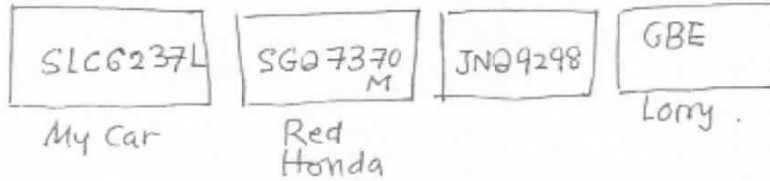 SLC6237L
My Car
SGQ7370
M
Red
Honda
JNQ9298
GBE
Lorry.